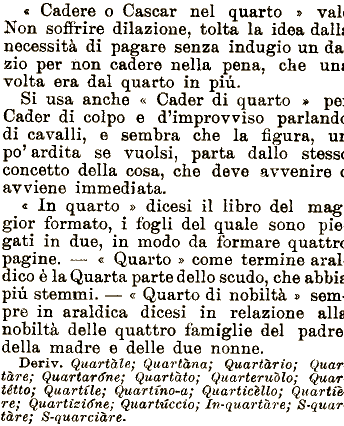 « Cadere o Cascar nel quarto » val
Non soffrire dilazione, tolta la idea dall
necessità di pagare senza indugio un da
zio per non cadere nella pena, che una
volta era dal quarto in più.
Si usa anche « Cader di quarto » pe
Cader di colpo e d'improvviso parlando
di cavalli, e sembra che la figura, un
po' ardita se vuolsi, parta dallo stesso
concetto della cosa, che deve avvenire o
avviene immediata.
« In quarto » dicesi il libro del mag
gior formato, i fogli del quale sono pie
gati in due, in modo da formare quattro
pagine. — « Quarto » come termine aral
dico è la Quarta parte dello scudo, che abbia
più stemmi. — « Quarto di nobiltà » sem-
pre in araldica dicesi in relazione alla
nobiltà delle quattro famiglie del padre
della madre e delle due nonne.
Deriv. Quartàle; Quartàna; Quartàrio; Quar
tàre; Quartaróne; Quartàto; Quarteruòlo; Quar
tétto; Quartíle; Quartíno-a; Quarticèllo; Quartiè
re; Quartizióne; Quartúccio; In-quartàre; S-quar
tàre; S-quarciàre.